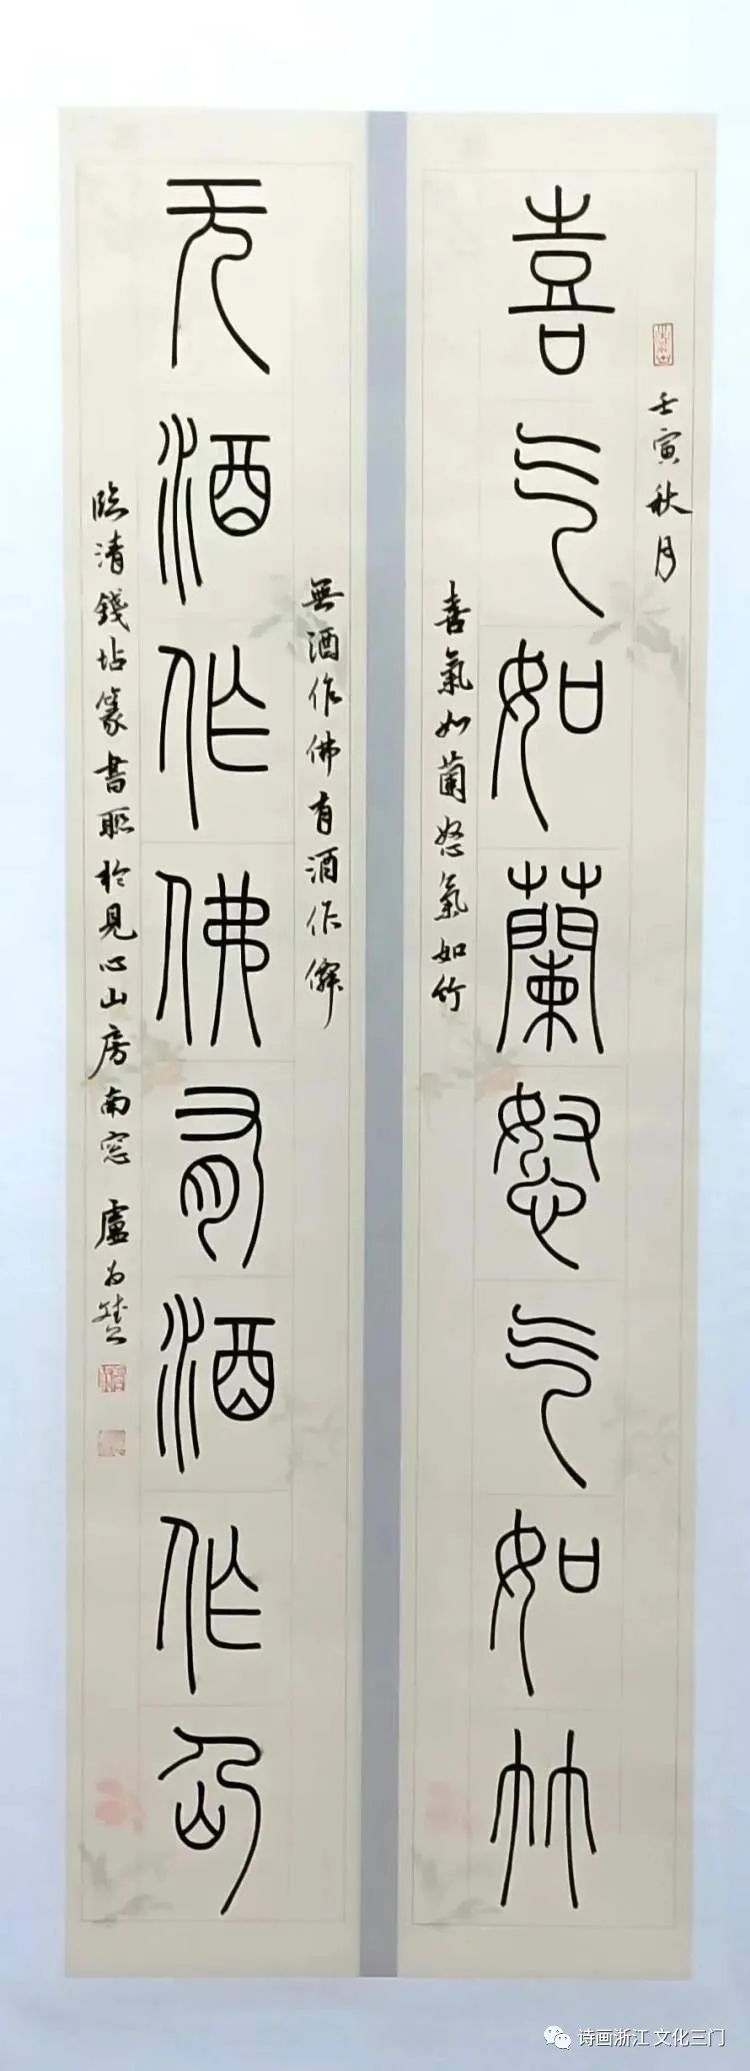 壬寅秋月
喜气如蘭怒气如竹
喜氣如蘭怒氣如竹
无酒作佛有酒作仚
無酒作佛有酒作僊
臨清錢坫篆書聯於見心山房南窓 盧为
诗画浙江 文化三门